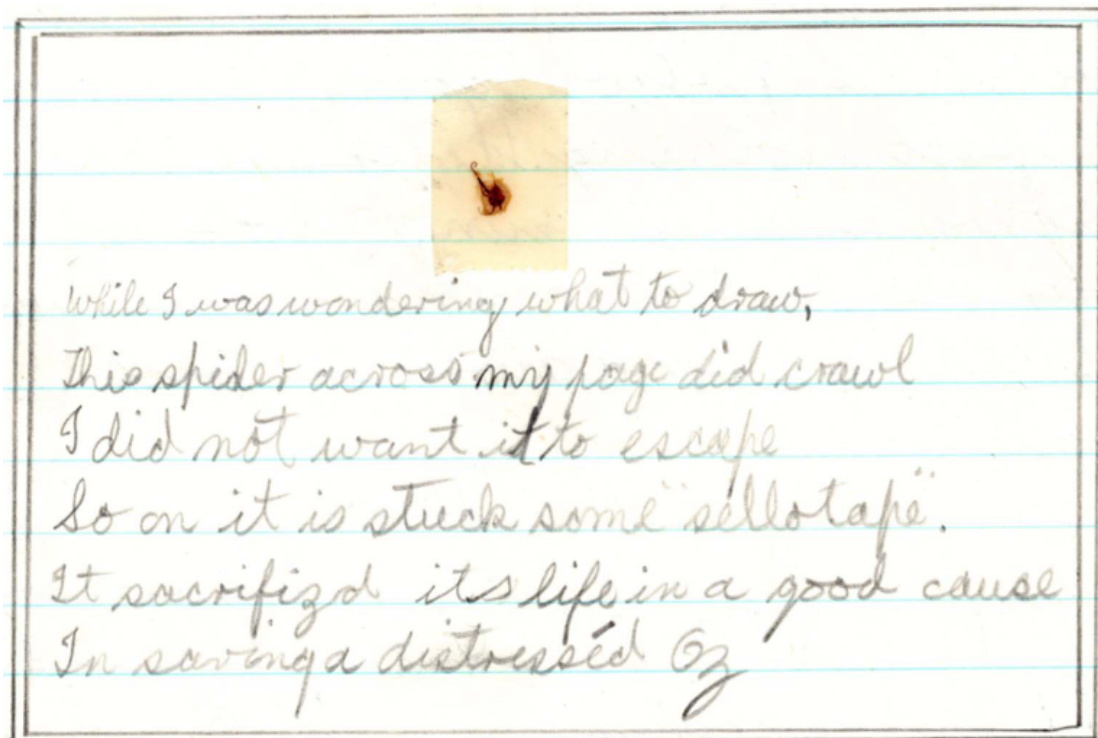 While I was wondering what to draw,
This spider across my page did crawl
I did not want it to escape
So on it is stuck some "sellotape".
It sacrifizd its life in a good cause
In saving a distresséd Oz